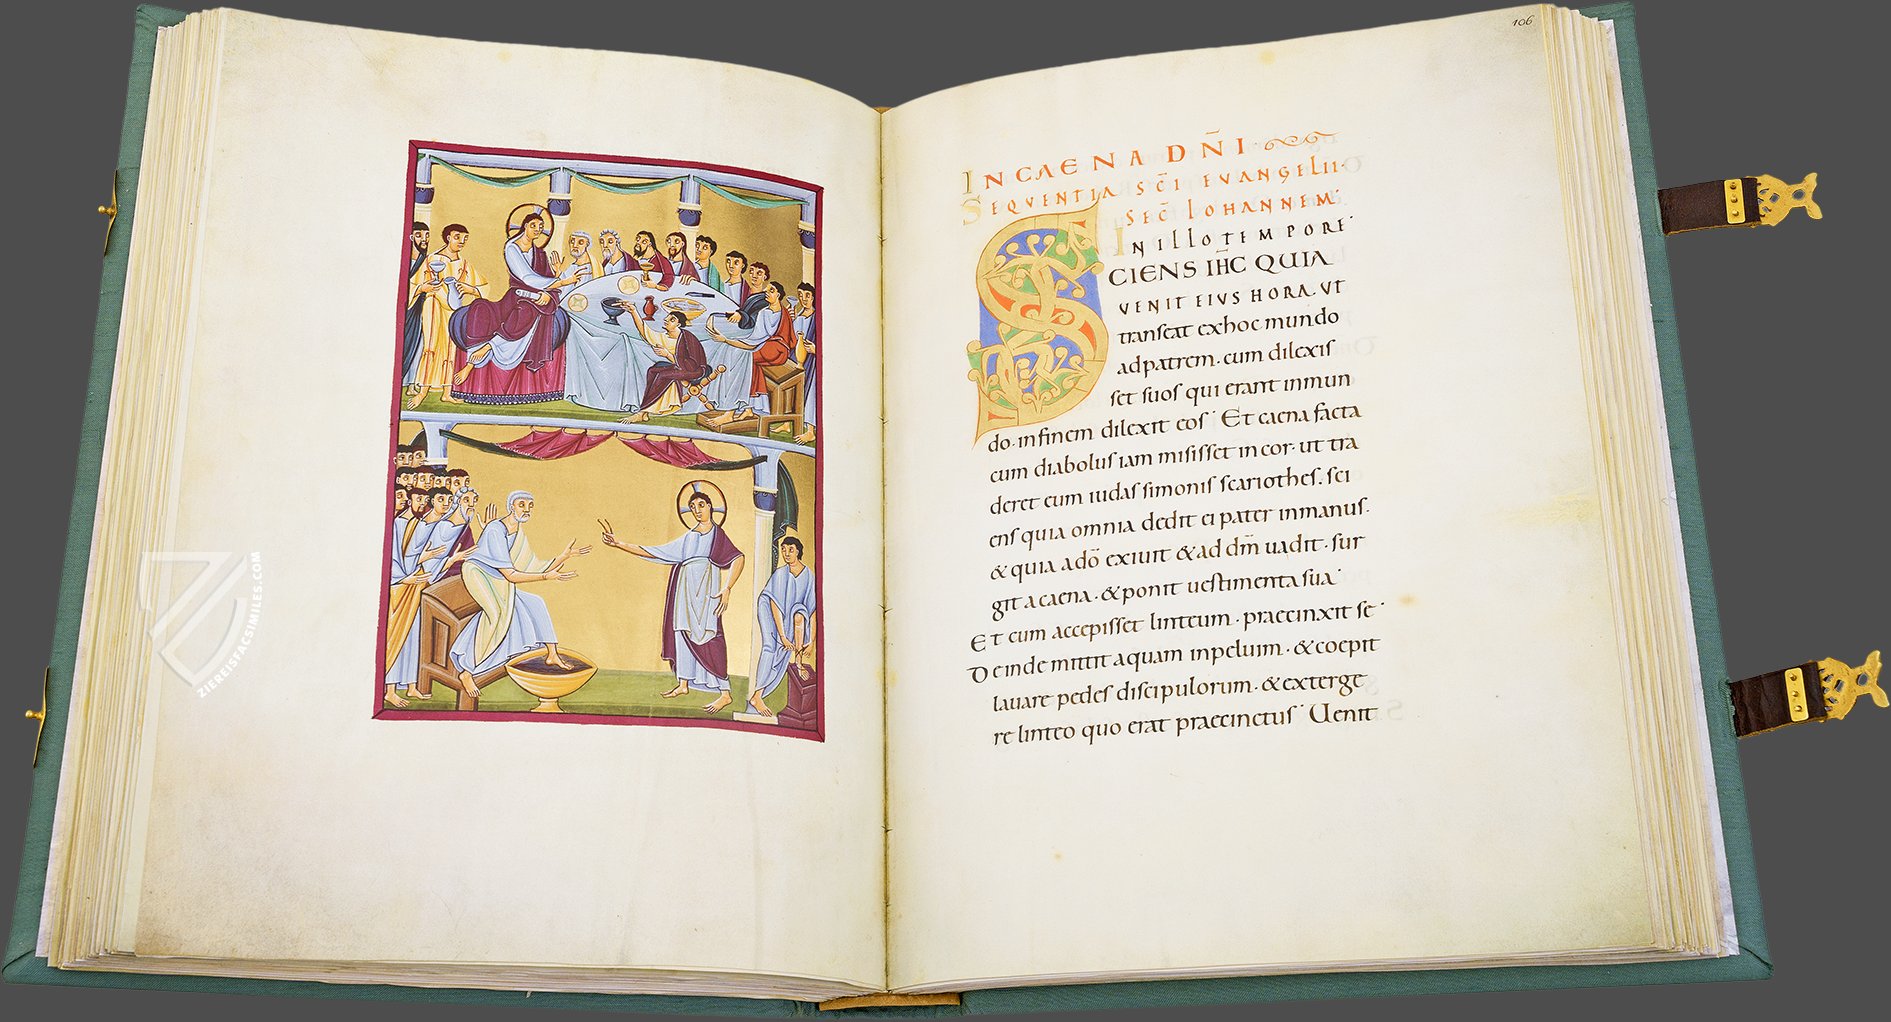 106
IN CAENA DN̄I
SEQVENTIA SC̄I EVANGELII·
SEC̄ IOHANNEM·
IN ILLO TEMPORE·
SCIENS IHC QUIA
VENIT EIVS HORA· VT
transeat ex hoc mundo
ad patrem· cum dilexis
set suos qui erant inmun
do· in finem dilexit eos· Et caena facta
cum diabolus iam misisset in cor· ut tra
deret eum iudas simonis scariothes· sci
ens quia omnia dedit ei pater in manus·
& quia a dō exiuit & ad dm̄ uadit· sur
git a caena· & ponit uestimenta sua·
Et cum accepisset linteum· praecinxit se·
Deinde mittit aquam in peluim· & coepit
lauare pedes discipulorum· & exterge
re linteo quo erat praecinctus· Uenit
ZIEREISFACSIMILES.COM